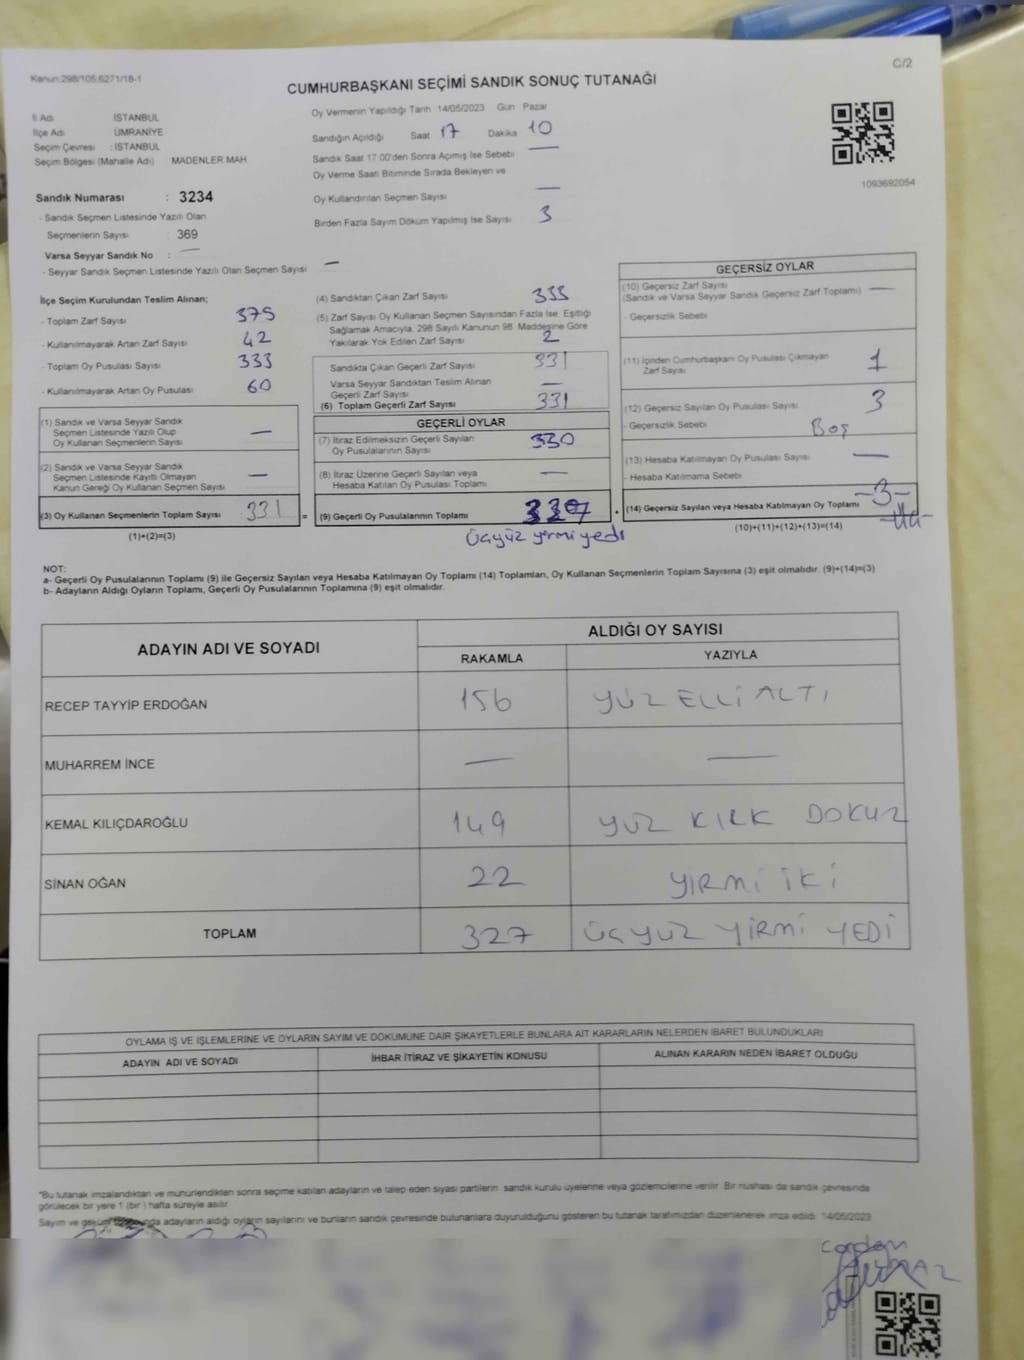 Kanun:298/105;6271/18-1
C/2
CUMHURBAŞKANI SEÇİMİ SANDIK SONUÇ TUTANAĞI
İl Adı İSTANBUL
İlçe Adı ÜMRANİYE
Seçim Çevresi : İSTANBUL
Seçim Bölgesi (Mahalle Adı) MADENLER MAH
Sandık Numarası : 3234
- Sandık Seçmen Listesinde Yazılı Olan
Seçmenlerin Sayısı : 369
Varsa Seyyar Sandık No : —
- Seyyar Sandık Seçmen Listesinde Yazılı Olan Seçmen Sayısı —
Oy Vermenin Yapıldığı Tarih 14/05/2023 Gün Pazar
Sandığın Açıldığı Saat 17 Dakika 10
Sandık Saat 17.00'den Sonra Açımış İse Sebebi —
Oy Verme Saati Bitiminde Sırada Bekleyen ve
Oy Kullandırılan Seçmen Sayısı —
Birden Fazla Sayım Döküm Yapılmış İse Sayısı 3
1093692054
İlçe Seçim Kurulundan Teslim Alınan;
- Toplam Zarf Sayısı 375
- Kullanılmayarak Artan Zarf Sayısı 42
- Toplam Oy Pusulası Sayısı 333
- Kullanılmayarak Artan Oy Pusulası 60
(1) Sandık ve Varsa Seyyar Sandık
Seçmen Listesinde Yazılı Olup
Oy Kullanan Seçmenlerin Sayısı —
(2) Sandık ve Varsa Seyyar Sandık
Seçmen Listesinde Kayıtlı Olmayan
Kanun Gereği Oy Kullanan Seçmen Sayısı —
(3) Oy Kullanan Seçmenlerin Toplam Sayısı 331 =
(1)+(2)=(3)
(4) Sandıktan Çıkan Zarf Sayısı 333
(5) Zarf Sayısı Oy Kullanan Seçmen Sayısından Fazla İse, Eşitliği
Sağlamak Amacıyla, 298 Sayılı Kanunun 98. Maddesine Göre
Yakılarak Yok Edilen Zarf Sayısı 2
Sandıkta Çıkan Geçerli Zarf Sayısı 331
Varsa Seyyar Sandıktan Teslim Alınan
Geçerli Zarf Sayısı —
(6) Toplam Geçerli Zarf Sayısı 331
GEÇERLİ OYLAR
(7) İtiraz Edilmeksizin Geçerli Sayılan
Oy Pusulalarının Sayısı 330
(8) İtiraz Üzerine Geçerli Sayılan veya
Hesaba Katılan Oy Pusulası Toplamı —
(9) Geçerli Oy Pusulalarının Toplamı 327 +
Üçyüz yirmi yedi
GEÇERSİZ OYLAR
(10) Geçersiz Zarf Sayısı
(Sandık ve Varsa Seyyar Sandık Geçersiz Zarf Toplamı) —
- Geçersizlik Sebebi
(11) İçinden Cumhurbaşkanı Oy Pusulası Çıkmayan
Zarf Sayısı 1
(12) Geçersiz Sayılan Oy Pusulası Sayısı 3
- Geçersizlik Sebebi Boş
(13) Hesaba Katılmayan Oy Pusulası Sayısı —
- Hesaba Katılmama Sebebi
(14) Geçersiz Sayılan veya Hesaba Katılmayan Oy Toplamı -3-
(10)+(11)+(12)+(13)=(14)
NOT:
a- Geçerli Oy Pusulalarının Toplamı (9) ile Geçersiz Sayılan veya Hesaba Katılmayan Oy Toplamı (14) Toplamları, Oy Kullanan Seçmenlerin Toplam Sayısına (3) eşit olmalıdır. (9)+(14)=(3)
b- Adayların Aldığı Oyların Toplamı, Geçerli Oy Pusulalarının Toplamına (9) eşit olmalıdır.
ADAYIN ADI VE SOYADI ALDIĞI OY SAYISI
RAKAMLA YAZIYLA
RECEP TAYYİP ERDOĞAN 156 YÜZ ELLİ ALTI
MUHARREM İNCE — —
KEMAL KILIÇDAROĞLU 149 YÜZ KIRK DOKUZ
SİNAN OĞAN 22 YİRMİ İKİ
TOPLAM 327 ÜÇYÜZ YİRMİ YEDİ
OYLAMA İŞ VE İŞLEMLERİNE VE OYLARIN SAYIM VE DÖKÜMÜNE DAİR ŞİKAYETLERLE BUNLARA AİT KARARLARIN NELERDEN İBARET BULUNDUKLARI
ADAYIN ADI VE SOYADI İHBAR İTİRAZ VE ŞİKAYETİN KONUSU ALINAN KARARIN NEDEN İBARET OLDUĞU
*Bu tutanak imzalandıktan ve mühürlendikten sonra seçime katılan adayların ve talep eden siyasi partilerin sandık kurulu üyelerine veya gözlemcilerine verilir. Bir nüshası da sandık çevresinde
görülecek bir yere 1 (bir) hafta süreyle asılır.
Sayım ve döküm adayların aldığı oyların sayılarını ve bunların sandık çevresinde bulunanlara duyurulduğunu gösteren bu tutanak tarafımızdan düzenlenerek imza edildi. 14/05/2023